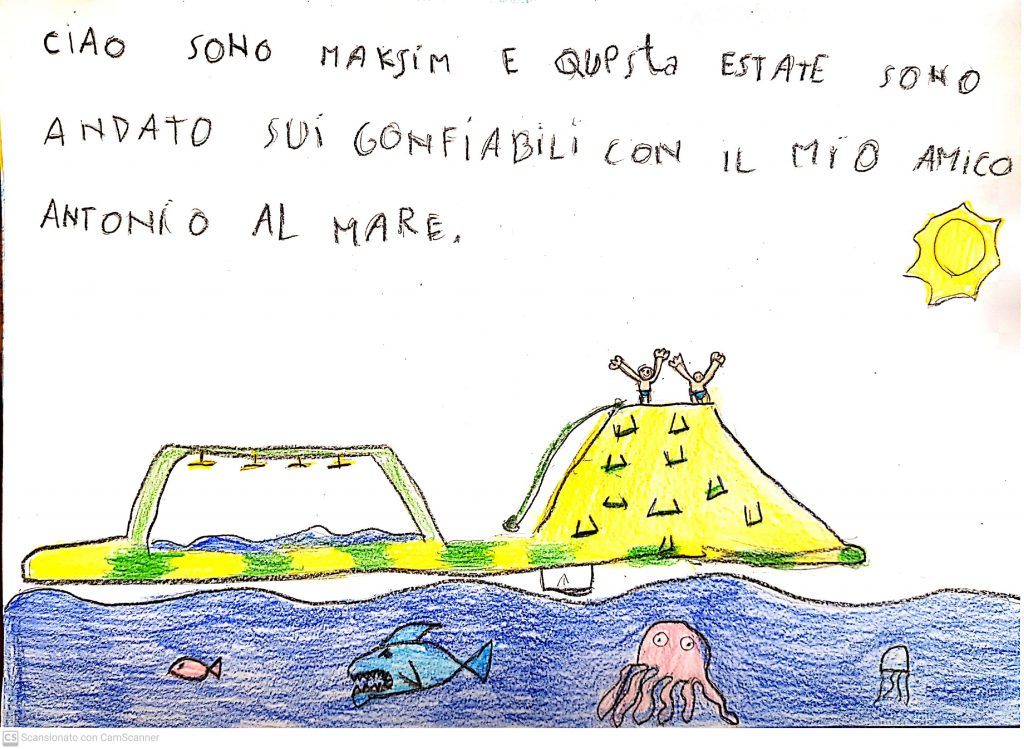 CIAO SONO MAKSIM E QUESta ESTATE SONO
ANDATO SUI GONFIABILI CON IL MIO AMICO
ANTONIO AL MARE.
CS Scansionato con CamScanner